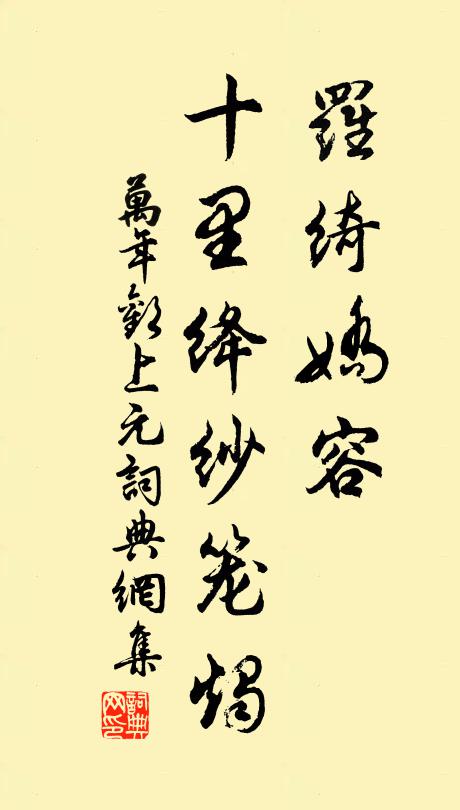 羅綺嬌容
十里絳紗笼燭
萬年歡上元詞典網集
詞典网印